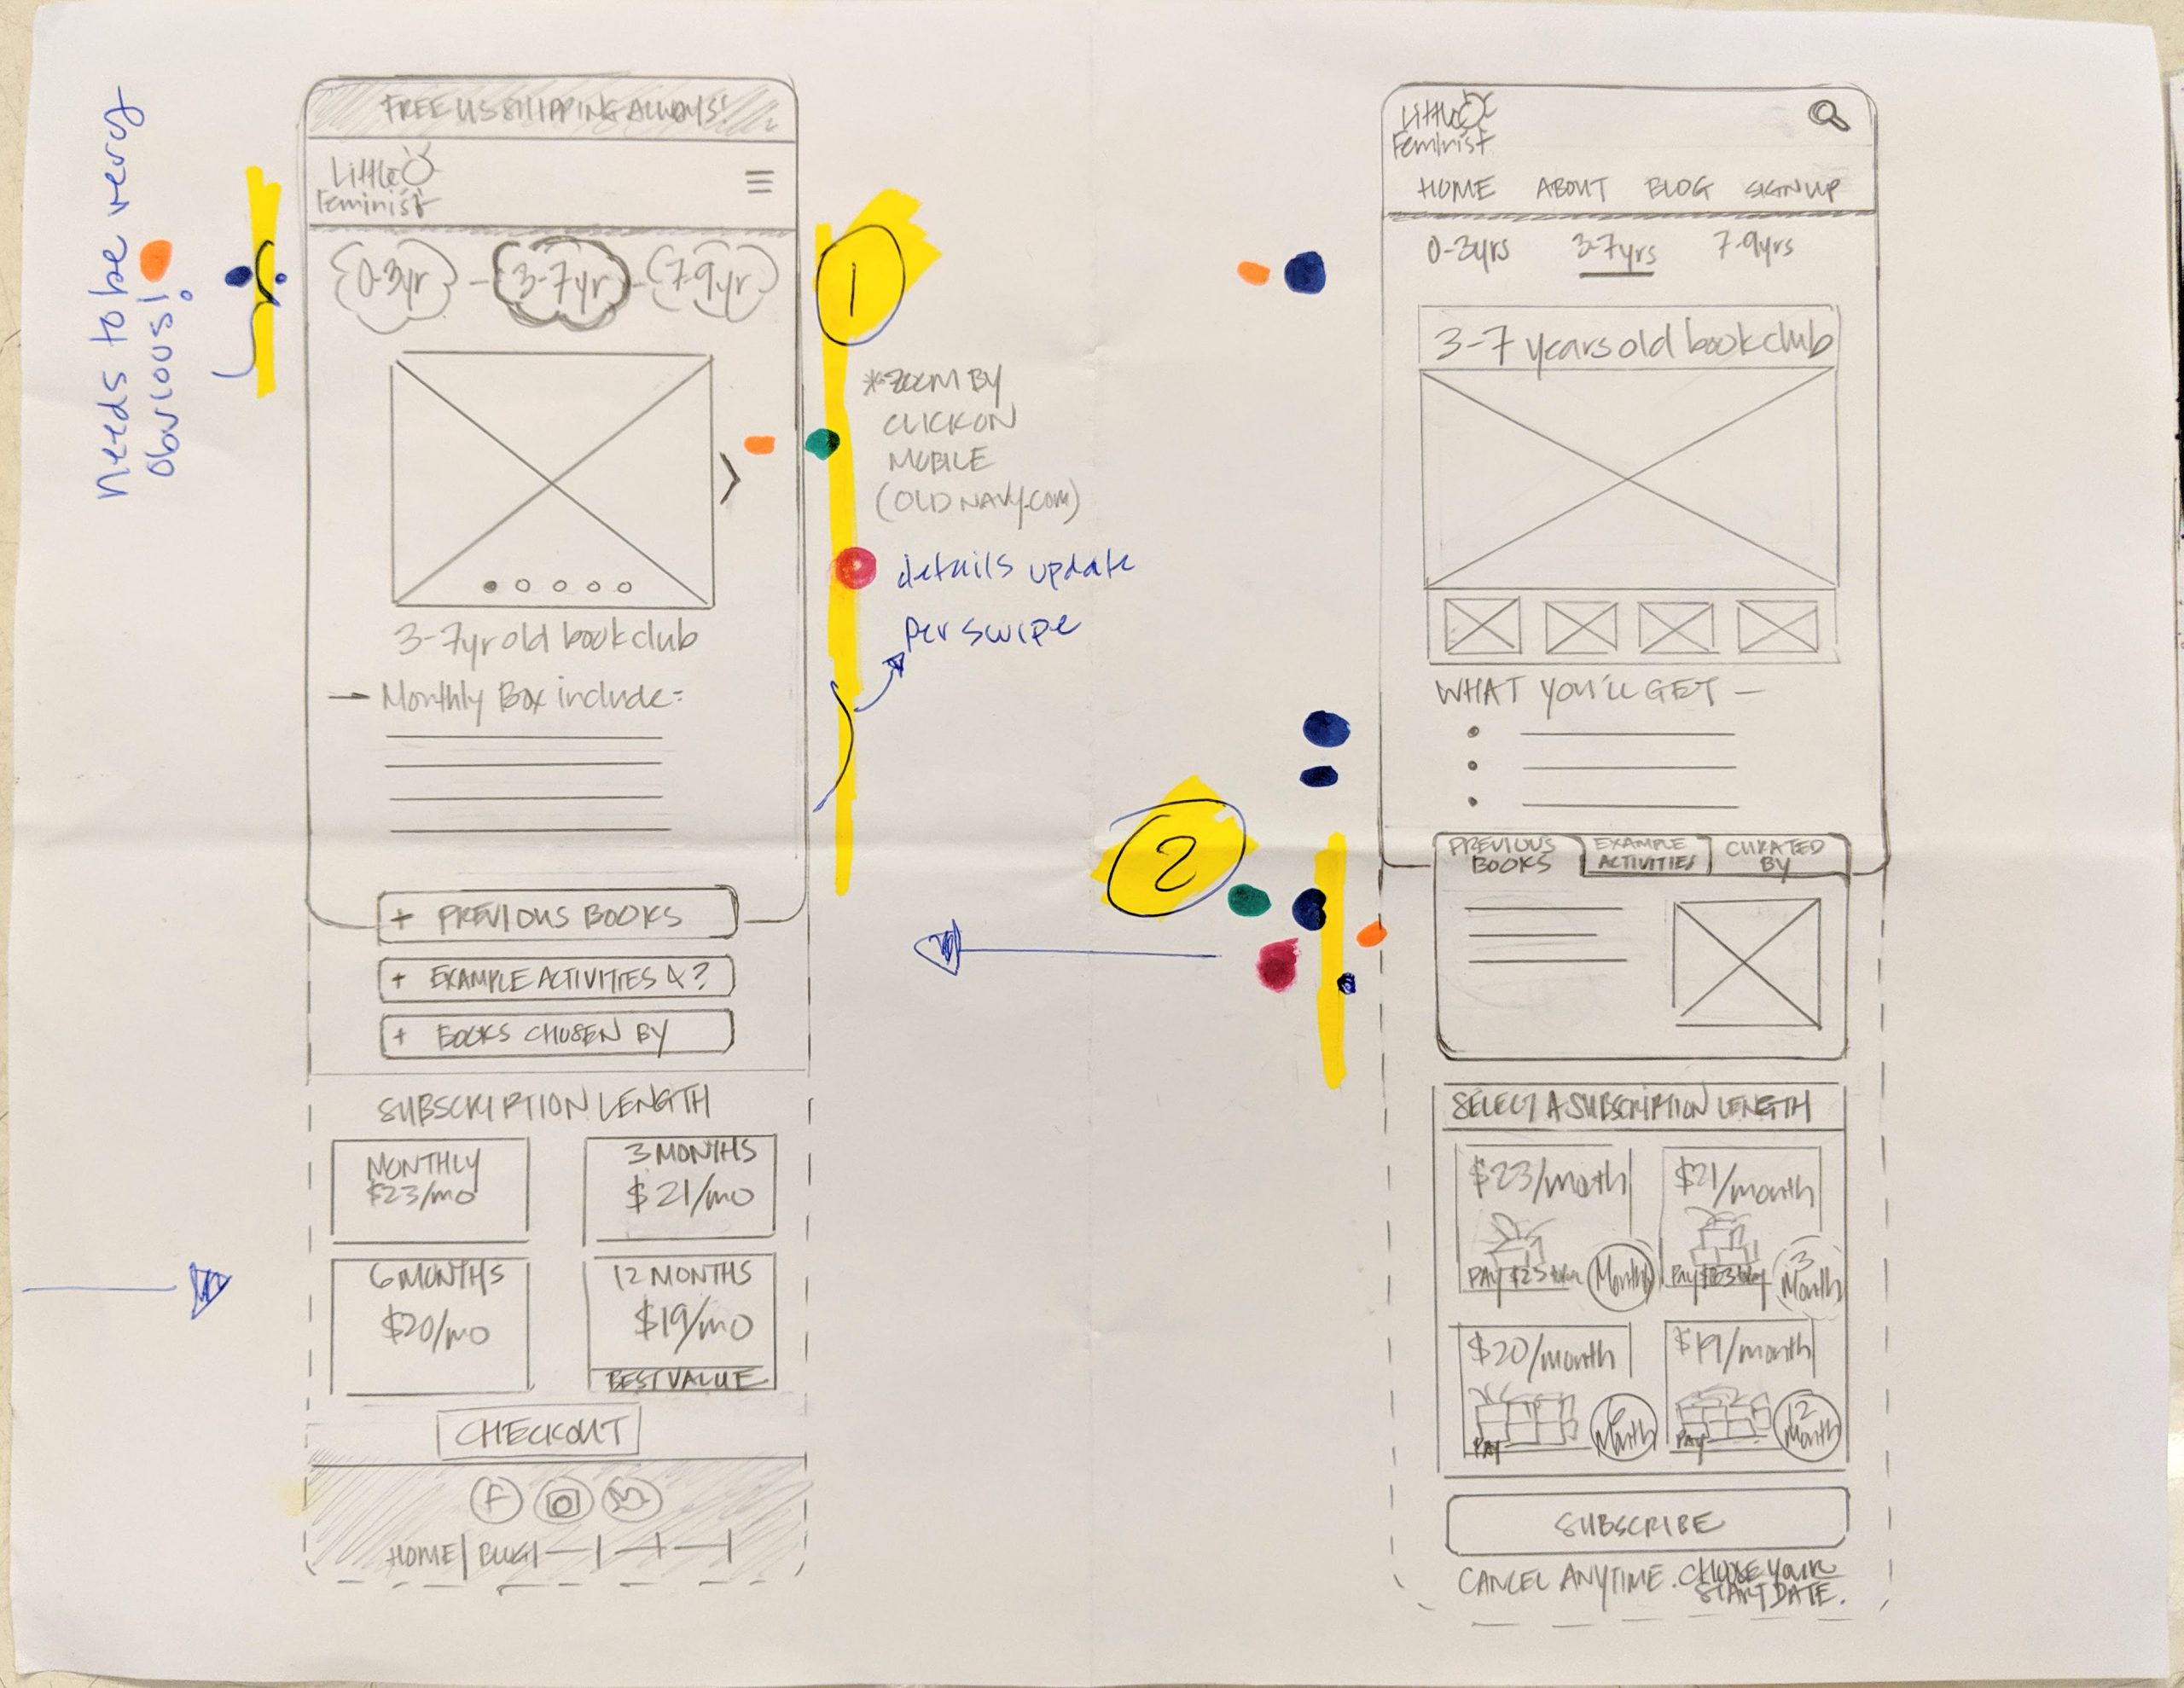 needs to be very
obvious!
FREE US SHIPPING ALWAYS!
Little
Feminist
0-3yr - 3-7yr - 7-9yr
1
*ZOOM BY
CLICK ON
MOBILE
(OLDNAVY.COM)
details update
per swipe
3-7yr old book club
Monthly Box include:
+ PREVIOUS BOOKS
+ EXAMPLE ACTIVITIES & ?
+ BOOKS CHOSEN BY
SUBSCRIPTION LENGTH
MONTHLY
$23/mo
3 MONTHS
$21/mo
6 MONTHS
$20/mo
12 MONTHS
$19/mo
BEST VALUE
CHECKOUT
HOME | BLOG |
2
Little
Feminist
HOME ABOUT BLOG SIGN UP
0-3yrs 3-7yrs 7-9yrs
3-7 years old book club
WHAT YOU'LL GET -
PREVIOUS
BOOKS
EXAMPLE
ACTIVITIES
CURATED
BY
SELECT A SUBSCRIPTION LENGTH
$23/month
PAY
Month
$21/month
PAY $63 today
3
Month
$20/month
PAY
6
Month
$19/month
PAY
12
Month
SUBSCRIBE
CANCEL ANYTIME. CHOOSE YOUR
START DATE.